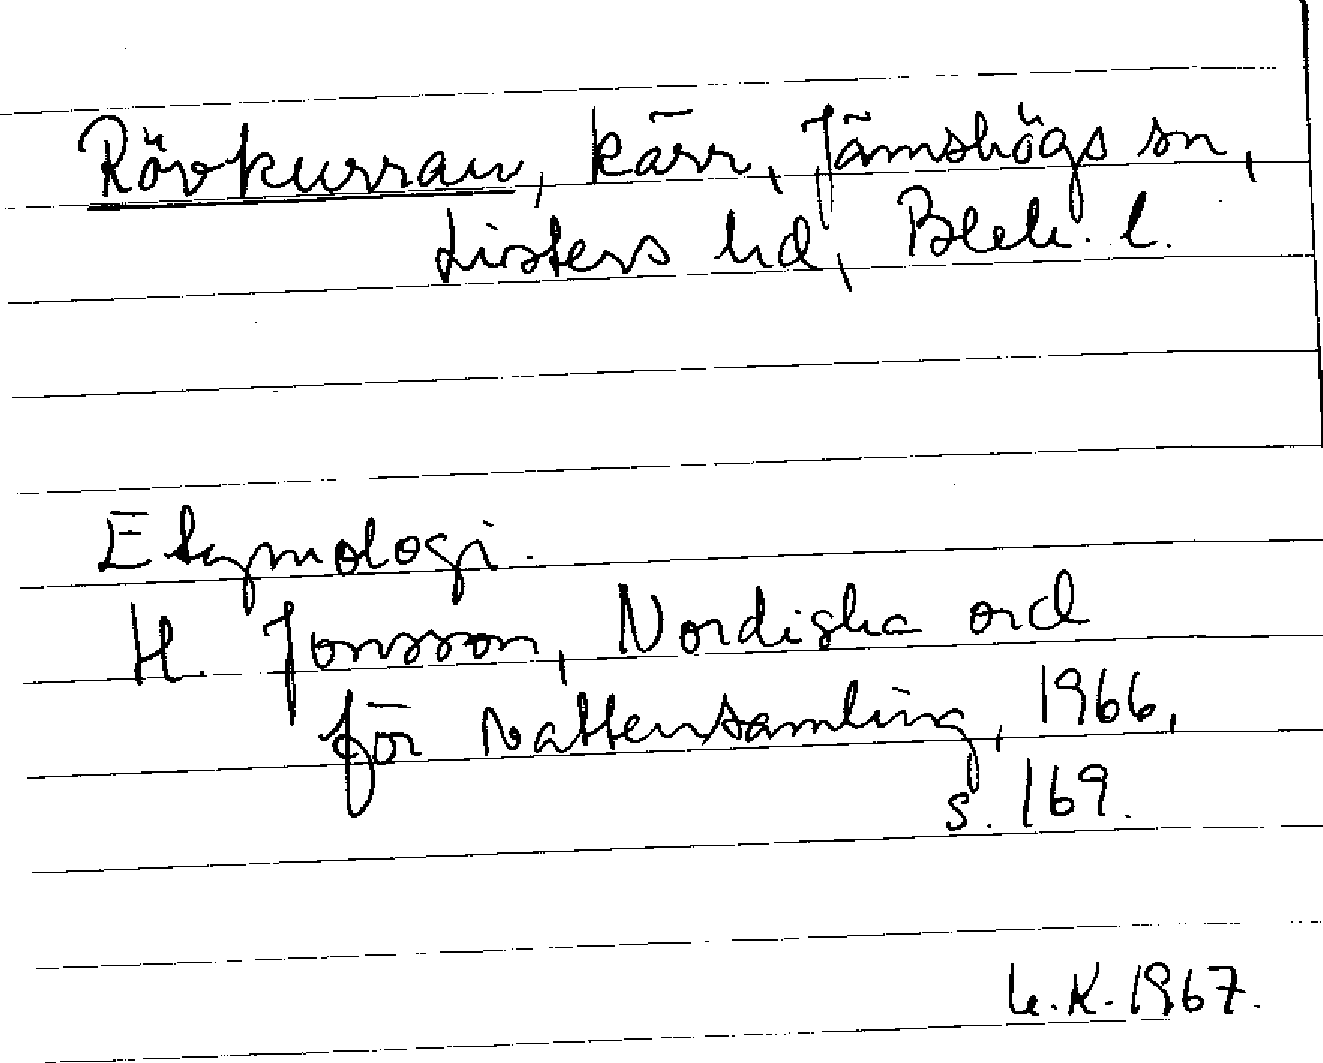 Rövkurran, kärr, Jämshögs sn,
Listers hd, Blek. l.
Etymologi.
H. Jonsson, Nordiska ord
för vattensamling, 1966,
s. 169.
L.K. 1967.